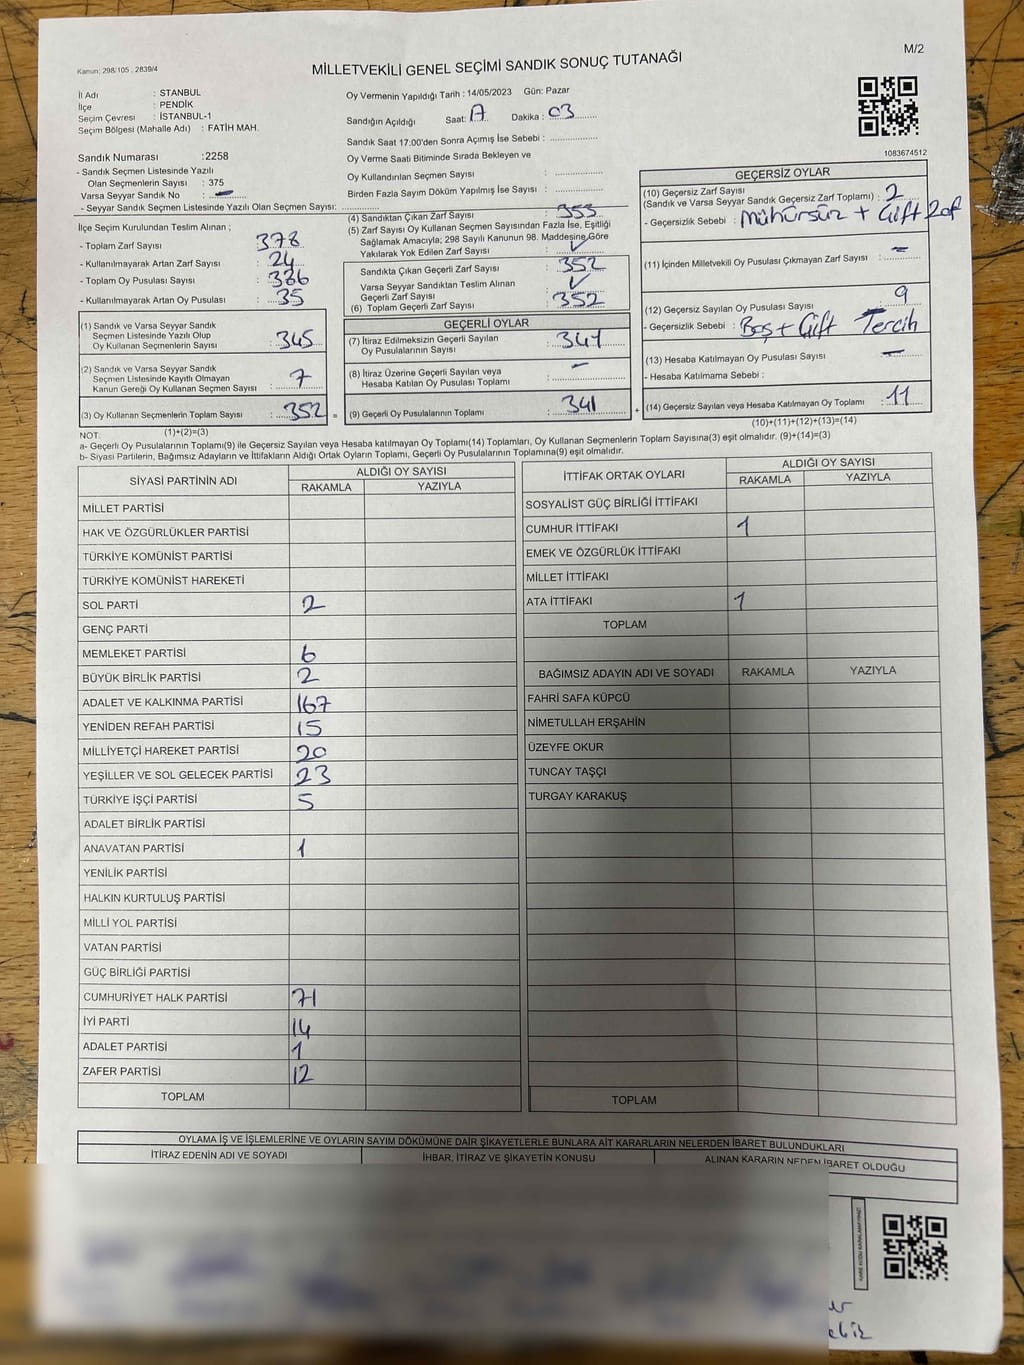 Kanun; 298/105 , 2839/4
MİLLETVEKİLİ GENEL SEÇİMİ SANDIK SONUÇ TUTANAĞI
M/2
İl Adı : STANBUL
İlçe : PENDİK
Seçim Çevresi : İSTANBUL-1
Seçim Bölgesi (Mahalle Adı) : FATİH MAH.
Sandık Numarası :2258
- Sandık Seçmen Listesinde Yazılı
Olan Seçmenlerin Sayısı : 375
Varsa Seyyar Sandık No : -
- Seyyar Sandık Seçmen Listesinde Yazılı Olan Seçmen Sayısı:
İlçe Seçim Kurulundan Teslim Alınan ;
- Toplam Zarf Sayısı : 378
- Kullanılmayarak Artan Zarf Sayısı : 24
- Toplam Oy Pusulası Sayısı : 386
- Kullanılmayarak Artan Oy Pusulası : 35
(1) Sandık ve Varsa Seyyar Sandık
Seçmen Listesinde Yazılı Olup
Oy Kullanan Seçmenlerin Sayısı : 345
(2) Sandık ve Varsa Seyyar Sandık
Seçmen Listesinde Kayıtlı Olmayan
Kanun Gereği Oy Kullanan Seçmen Sayısı : 7
(3) Oy Kullanan Seçmenlerin Toplam Sayısı : 352
(1)+(2)=(3)
Oy Vermenin Yapıldığı Tarih : 14/05/2023 Gün: Pazar
Sandığın Açıldığı Saat: Dakika : 03
Sandık Saat 17:00'den Sonra Açımış İse Sebebi :
Oy Verme Saati Bitiminde Sırada Bekleyen ve
Oy Kullandırılan Seçmen Sayısı :
Birden Fazla Sayım Döküm Yapılmış İse Sayısı :
(4) Sandıktan Çıkan Zarf Sayısı : 353
(5) Zarf Sayısı Oy Kullanan Seçmen Sayısından Fazla İse, Eşitliği
Sağlamak Amacıyla; 298 Sayılı Kanunun 98. Maddesine Göre
Yakılarak Yok Edilen Zarf Sayısı :
Sandıkta Çıkan Geçerli Zarf Sayısı : 352
Varsa Seyyar Sandıktan Teslim Alınan
Geçerli Zarf Sayısı :
(6) Toplam Geçerli Zarf Sayısı : 352
GEÇERLİ OYLAR
(7) İtiraz Edilmeksizin Geçerli Sayılan
Oy Pusulalarının Sayısı : 341
(8) İtiraz Üzerine Geçerli Sayılan veya
Hesaba Katılan Oy Pusulası Toplamı : -
= (9) Geçerli Oy Pusulalarının Toplamı : 341
1083674512
GEÇERSİZ OYLAR
(10) Geçersiz Zarf Sayısı
(Sandık ve Varsa Seyyar Sandık Geçersiz Zarf Toplamı) : 2
- Geçersizlik Sebebi : Mühürsüz + Çift Zarf
(11) İçinden Milletvekili Oy Pusulası Çıkmayan Zarf Sayısı : -
(12) Geçersiz Sayılan Oy Pusulası Sayısı : 9
- Geçersizlik Sebebi : Boş + Çift Tercih
(13) Hesaba Katılmayan Oy Pusulası Sayısı : -
- Hesaba Katılmama Sebebi :
+ (14) Geçersiz Sayılan veya Hesaba Katılmayan Oy Toplamı : 11
(10)+(11)+(12)+(13)=(14)
NOT:
a- Geçerli Oy Pusulalarının Toplamı(9) ile Geçersiz Sayılan veya Hesaba Katılmayan Oy Toplamı(14) Toplamları, Oy Kullanan Seçmenlerin Toplam Sayısına(3) eşit olmalıdır. (9)+(14)=(3)
b- Siyasi Partilerin, Bağımsız Adayların ve İttifakların Aldığı Ortak Oyların Toplamı, Geçerli Oy Pusulalarının Toplamına(9) eşit olmalıdır.
SİYASİ PARTİNİN ADI ALDIĞI OY SAYISI
RAKAMLA YAZIYLA
MİLLET PARTİSİ
HAK VE ÖZGÜRLÜKLER PARTİSİ
TÜRKİYE KOMÜNİST PARTİSİ
TÜRKİYE KOMÜNİST HAREKETİ
SOL PARTİ 2
GENÇ PARTİ
MEMLEKET PARTİSİ 6
BÜYÜK BİRLİK PARTİSİ 2
ADALET VE KALKINMA PARTİSİ 167
YENİDEN REFAH PARTİSİ 15
MİLLİYETÇİ HAREKET PARTİSİ 20
YEŞİLLER VE SOL GELECEK PARTİSİ 23
TÜRKİYE İŞÇİ PARTİSİ 5
ADALET BİRLİK PARTİSİ
ANAVATAN PARTİSİ 1
YENİLİK PARTİSİ
HALKIN KURTULUŞ PARTİSİ
MİLLİ YOL PARTİSİ
VATAN PARTİSİ
GÜÇ BİRLİĞİ PARTİSİ
CUMHURİYET HALK PARTİSİ 71
İYİ PARTİ 14
ADALET PARTİSİ 1
ZAFER PARTİSİ 12
TOPLAM
İTTİFAK ORTAK OYLARI ALDIĞI OY SAYISI
RAKAMLA YAZIYLA
SOSYALİST GÜÇ BİRLİĞİ İTTİFAKI
CUMHUR İTTİFAKI 1
EMEK VE ÖZGÜRLÜK İTTİFAKI
MİLLET İTTİFAKI
ATA İTTİFAKI 1
TOPLAM
BAĞIMSIZ ADAYIN ADI VE SOYADI RAKAMLA YAZIYLA
FAHRİ SAFA KÜPCÜ
NİMETULLAH ERŞAHİN
ÜZEYFE OKUR
TUNCAY TAŞÇI
TURGAY KARAKUŞ
TOPLAM
OYLAMA İŞ VE İŞLEMLERİNE VE OYLARIN SAYIM DÖKÜMÜNE DAİR ŞİKAYETLERLE BUNLARA AİT KARARLARIN NELERDEN İBARET BULUNDUKLARI
İTİRAZ EDENİN ADI VE SOYADI İHBAR, İTİRAZ VE ŞİKAYETİN KONUSU ALINAN KARARIN NEDEN İBARET OLDUĞU